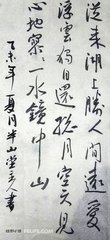 從来湖上勝人間遠愛
浮雲獨自還孤月空天見
心地寥々一水鏡中山
乙未年夏月半山堂主人書